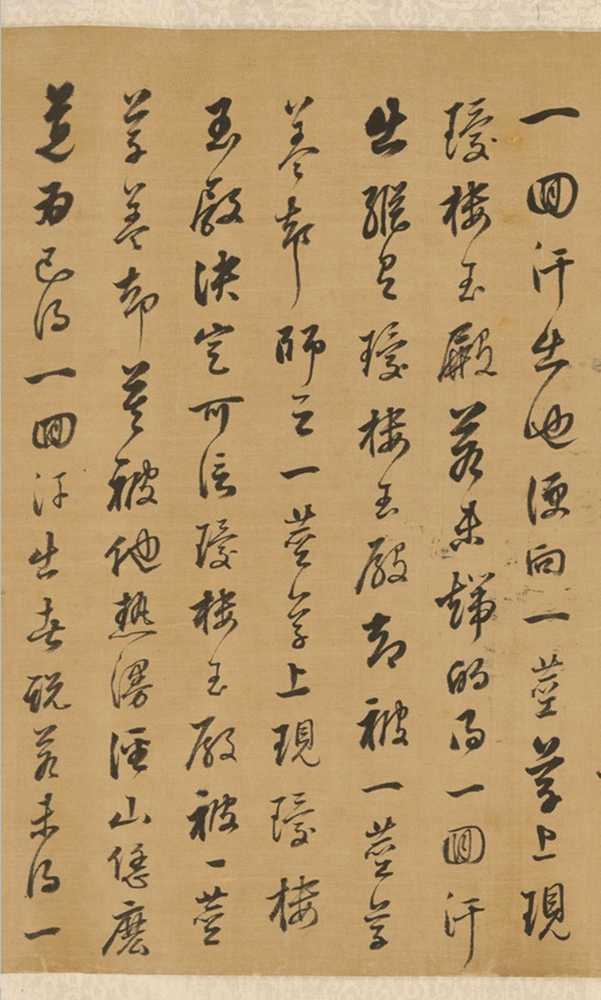 一囘汗出也便向一莖草上現
瓊樓玉殿若未端的得一囘汗
出縱有瓊樓玉殿却被一莖草
蓋却師云一莖草上現瓊樓
玉殿決定可信瓊樓玉殿被一莖
草蓋却莫被他熱謾徑山恁麼
道為已得一囘汗出者說若未得一